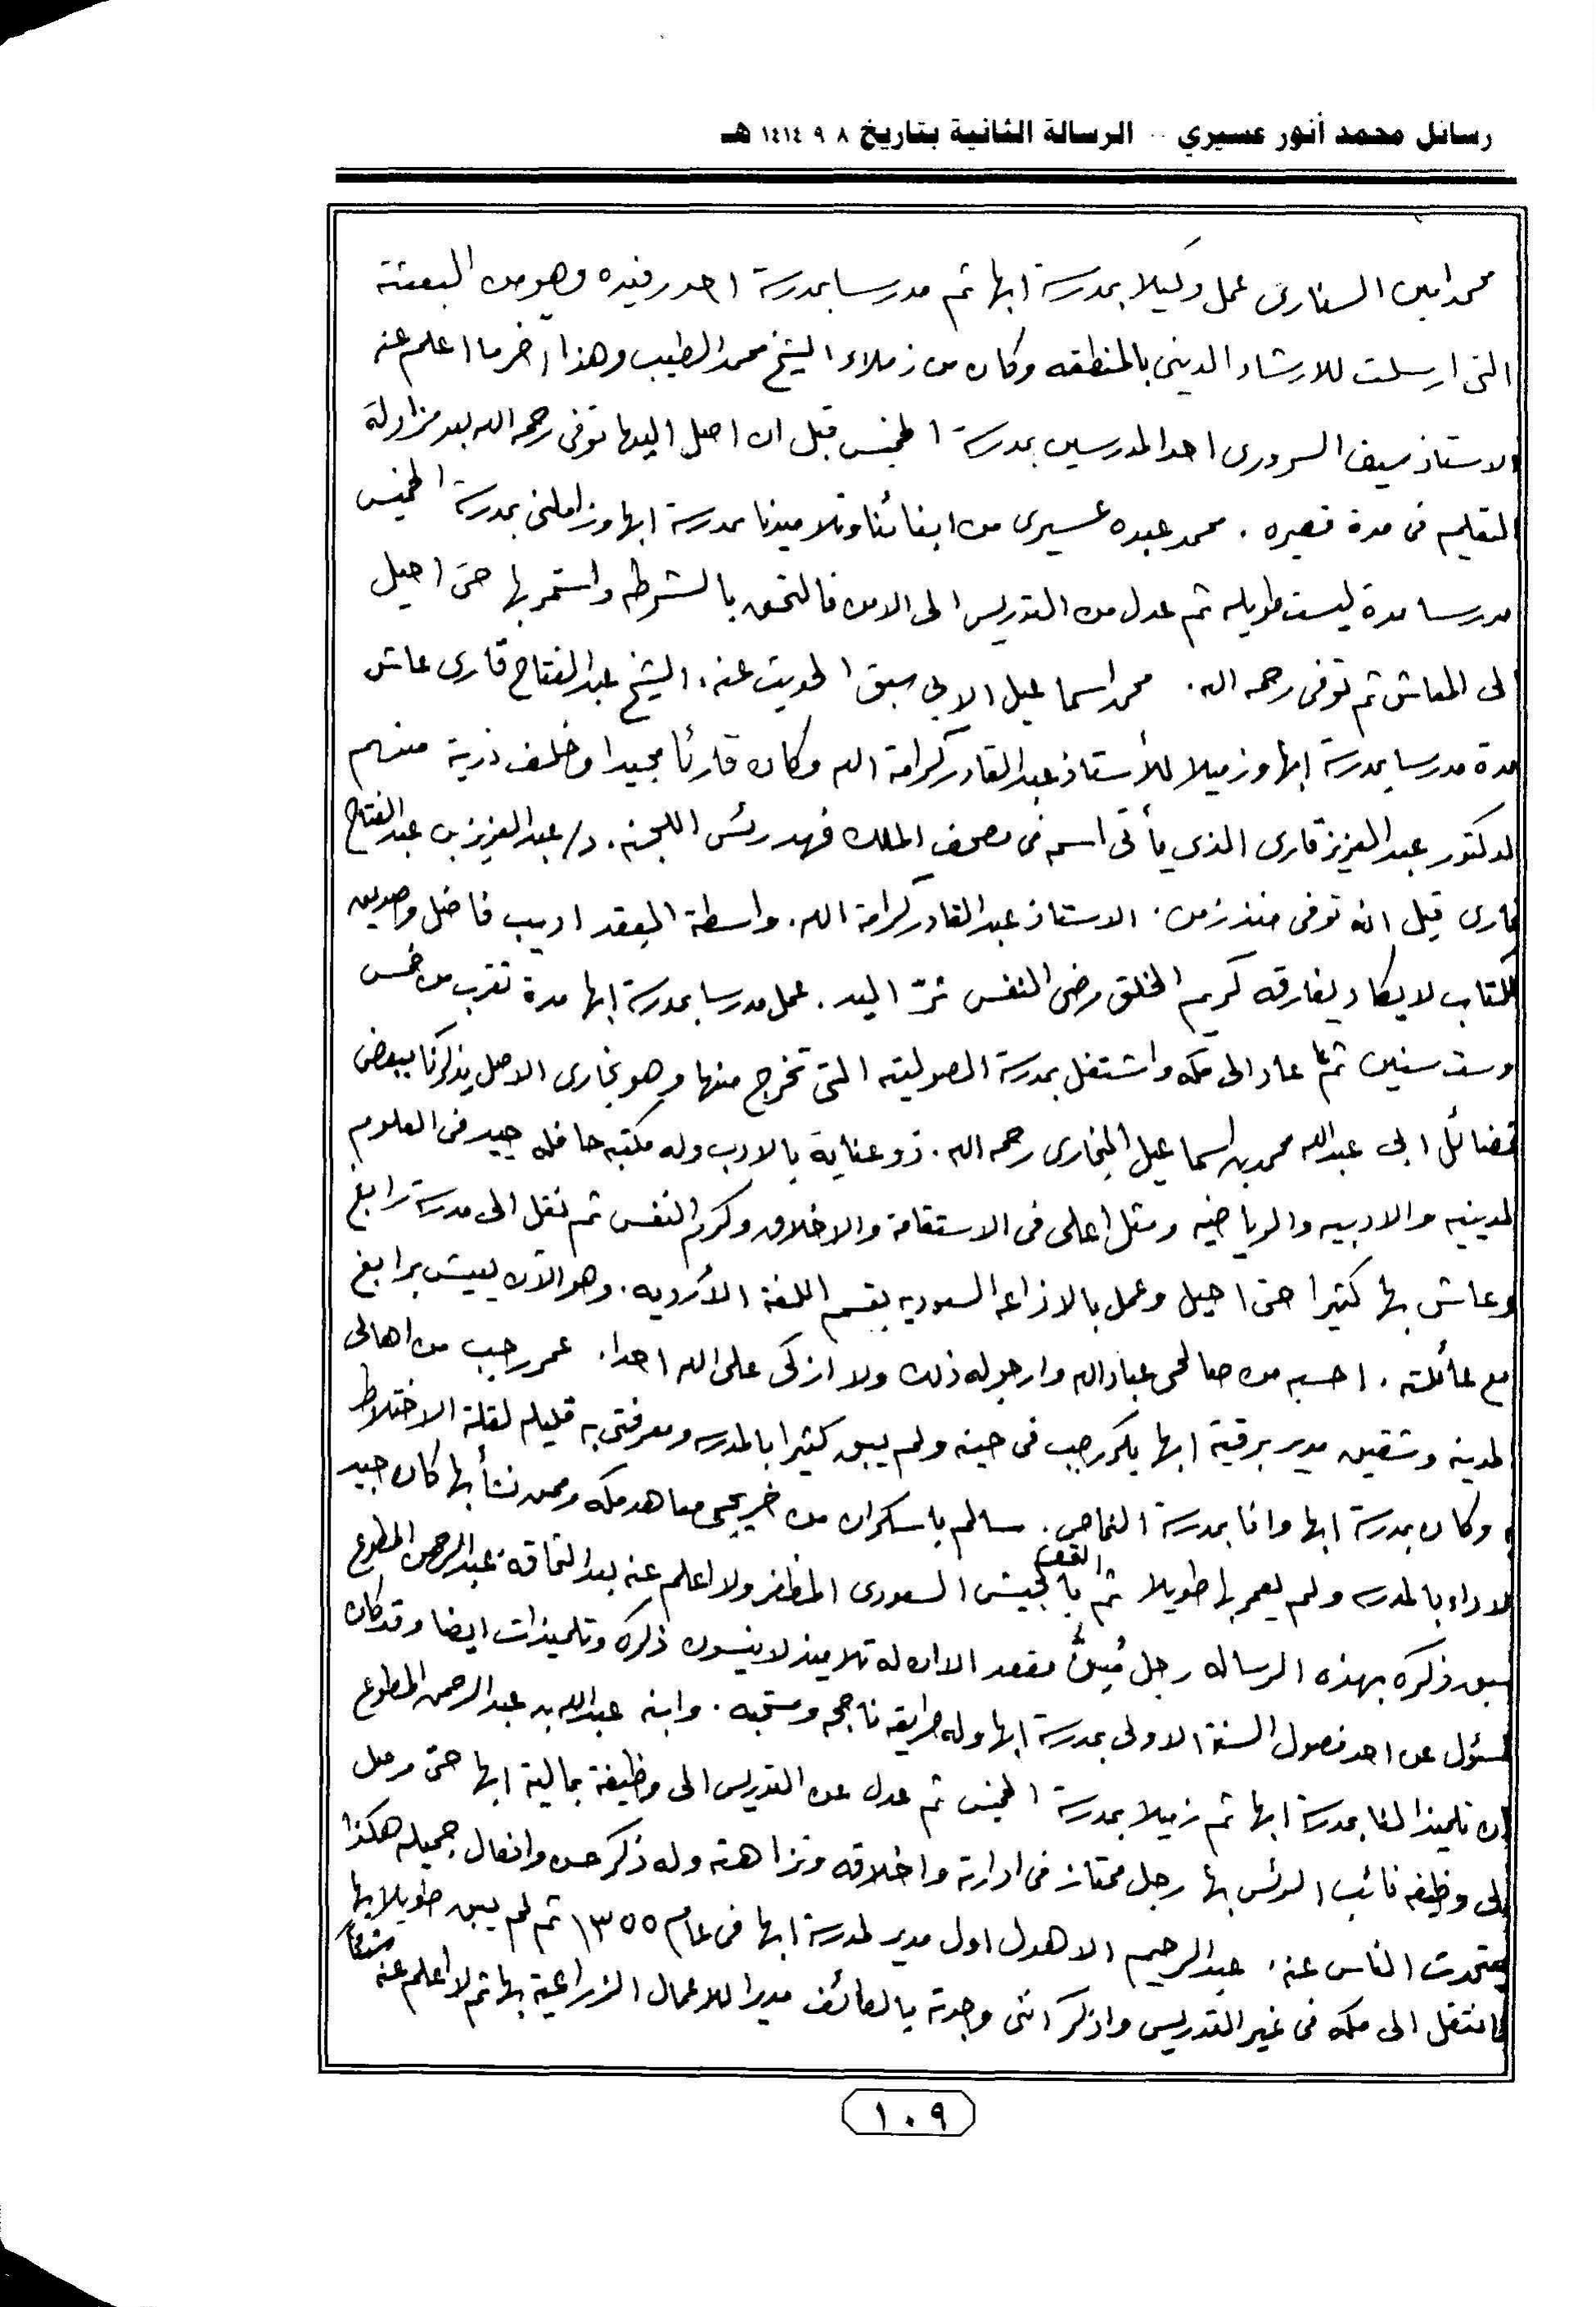 رسائل محمد أنور عسيري -- الرسالة الثانية بتاريخ ٨ ٩ ١٤١٤ هـ
محمد امين السناري عمل وكيلا بمدرسة ابها ثم مدرسا بمدرسة احد رفيده وهو من البعثة
التى ارسلت للارشاد الدينى بالمنطقه وكان من زملاء الشيخ محمد الطيب وهذا اخر ما اعلم عنه
الاستاذ سيف السرورى احد المدرسين بمدرسة الخميس قبل ان اصل اليها توفى رحمه الله بعد مزاولة
التعليم فى مدة قصيره . محمد عبده عسيرى من ابنائنا وتلاميذنا بمدرسة ابها وزاملنى بمدرسة الخميس
مدرسا مدة ليست طويله ثم عدل من التدريس الى الامن فالتحق بالشرطه واستمر بها حتى احيل
الى المعاش ثم توفى رحمه الله . محمد اسماعيل الابي سبق الحديث عنه . الشيخ عبدالفتاح قارى عاش
مدة مدرسا بمدرسة ابها وزميلا للأستاذ عبدالقادر كرامة الله وكان قارئا مجيدا وخلف ذرية منهم
الدكتور عبدالعزيز قارى الذي يأتى اسمه فى مصحف الملك فهد رئس اللجنه . د/ عبدالعزيز بن عبدالفتاح
قارى قيل انه توفى منذ زمن . الاستاذ عبدالقادر كرامة الله . واسطة العقد اديب فاضل وصديق
للكتاب لا يكاد يفارقه كريم الخلق رضى النفس ثرّ اليد . عمل مدرسا بمدرسة ابها مدة تقرب من خمس
وست سنين ثم عاد الى مكه واشتغل بمدرسة الصولتيه التى تخرج منها وهو بخارى الاصل يذكرنا ببعض
فضائل ابى عبدالله محمد بن اسماعيل البخارى رحمه الله . ذو عناية بالادب وله مكتبه حافله جيد فى العلوم
الدينيه والادبيه والرياضيه ومثل اعلى فى الاستقامة والاخلاق وكرم النفس ثم نقل الى مدرسة رابغ
وعاش بها كثيرا حتى احيل وعمل بالاذاعه السعوديه بقسم اللغة الأرديه . وهو الآن يعيش برابغ
مع عائلته . احسبه من صالحى عباد الله وارجو له ذلك ولا ازكى على الله احدا . عمر رجب من اهالى
المدينه وشقيق مدير برقية ابها بكر رجب فى حينه ولم يبق كثيرا بالمدرسه ومعرفتى به قليله لقلة الاختلاط
وكان بمدرسة ابها وانا بمدرسة النماص . سالم باسكران من خريجى معاهد مكه وممن نشأ بها كان جيد
الاداء بالمدرسه ولم يعمر بها طويلا ثم التحق بالجيش السعودى المظفر ولا اعلم عنه بعد التحاقه . عبدالرحمن المطوع
سبق ذكره بهذه الرساله رجل مقعد الا ان له تلاميذ لا ينسون ذكره وتلميذات ايضا وقد كان
مسئول عن احد فصول السنة الاولى بمدرسة ابها وله طرايقه ناجحه ومتحببه . وابنه عبدالله بن عبدالرحمن المطوع
كان تلميذا لنا بمدرسة ابها ثم زميلا بمدرسة الخميس ثم عدل عن التدريس الى وظيفة بمالية ابها حتى وصل
الى وظيفه نائب الرئس بها رجل ممتاز فى ادارته واخلاقه ونزاهته وله ذكر حسن وافعال جميله هكذا
يتحدث الناس عنه . عبدالرحيم الاهدل اول مدير لمدرسة ابها فى عام ١٣٥٥ ثم لم يبق طويلا بها
فانتقل الى مكه فى غير التدريس واذكر انى وجدته بالطائف مديرا للاعمال الزراعية بها ثم لا اعلم عنه شيئاً
١٠٩